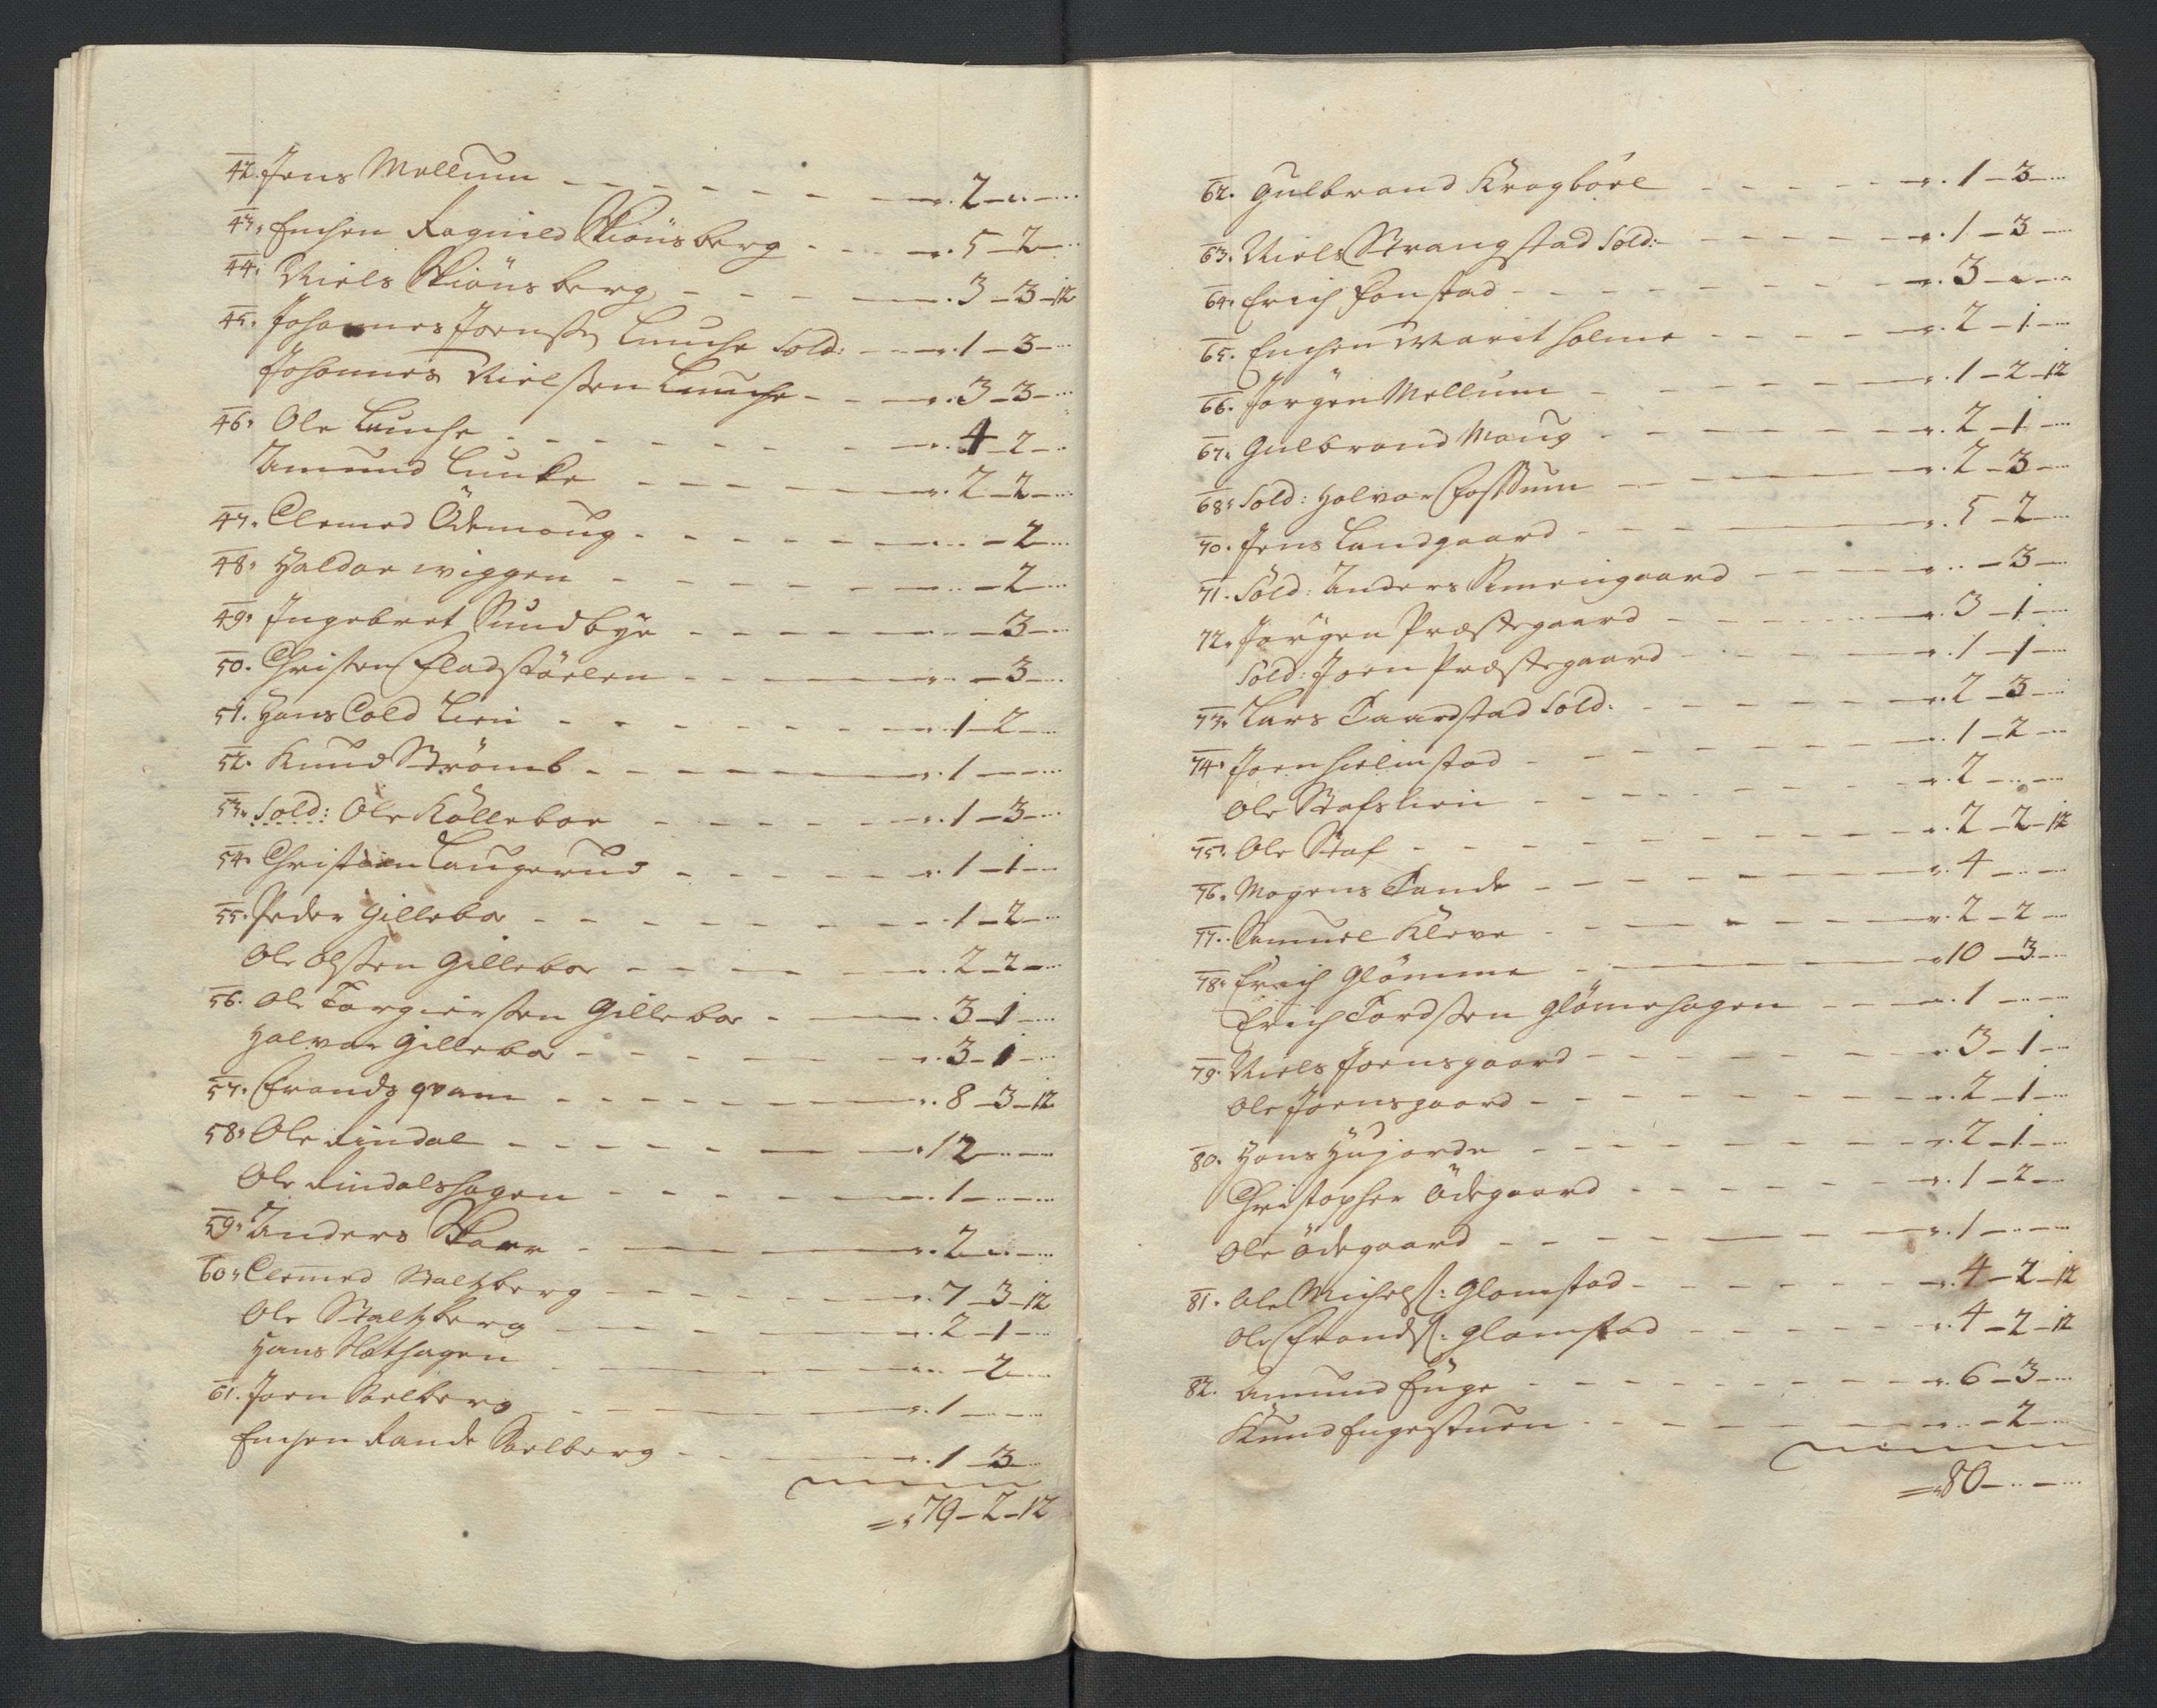 42. Jens Mellum - - - - - - 2 - " -
43. Enchen Ragnild Skiønsberg - - - 5 - 2 -
44. Niels Skiønsberg - - - - 3 - 3 - 12
45. Johannes Joensen Lunche Sold: - - 1 - 3 -
Johannes Nielssen Lunche - - - 3 - 3 -
46. Ole Lunche - - - - - - 4 - 2 -
Amund Lunke - - - - - 2 - 2 -
47. Clemed Ødemoug - - - - - - 2 -
48. Haldor Wiggen - - - - - - 2 -
49. Ingebret Sundbye - - - - - - 3 -
50. Christen Fladstøelen - - - - - 3 -
51. Hans Cold Lien - - - - - 1 - 2 -
52. Knud Strømb - - - - - 1 - -
53. Sold: Ole Køllebor - - - - - 1 - 3 -
54. Christian Laugerud - - - - - 1 - 1 -
55. Peder Gillebor - - - - - 1 - 2 -
Ole Olsten Gillebor - - - - 2 - 2 -
56. Ole Torgiersten Gillebor - - - 3 - 1 -
Halvor Gillebor - - - - - 3 - 1 -
57. Frands Qvam - - - - - - 8 - 3 - 12
58. Ole Rindal - - - - - - 12 - -
Ole Rindalshagen - - - - - 1 - -
59. Anders Skarr - - - - - 2 - " -
60. Clemed Staltzberg - - - - - 7 - 3 - 12
Ole Staltzberg - - - - - 2 - 1 -
Hans Slethagen - - - - - 2 -
61. Joen Stelberg - - - - - 1 - -
Enchen Rande Stelberg - - - - 1 - 3 -
= 179 - 2 - 12
62. Gulbrand Kragbøel - - - - - 1 - 3 -
63. Niels Strangstad Sold: - - - - 1 - 3 -
64. Erich Fonstad - - - - - - 3 - " -
65. Enchen Marit Holme - - - - 2 - 1 -
66. Jørgen Mellum - - - - - 1 - 2 - 12
67. Gulbrand Moug - - - - - 2 - 1 -
68. Sold: Halvor Fossum - - - - 2 - 3 -
70. Jens Landgaard - - - - - 5 - 2 -
71. Sold: Anders Simengaard - - - - 3 -
72. Jørgen Præstegaard - - - - 3 - 1 -
Sold: Joen Præstegaard - - - - 1 - 1 -
73. Lars Taardstad Sold: - - - - 2 - 3 -
74. Joen Hielmstad - - - - - 1 - 2 -
Ole Stafslien - - - - - 2 - -
75. Ole Staf - - - - - - 2 - 2 - 12
76. Mogens Tande - - - - - 4 - -
77. Samuel Kleve - - - - - 2 - 2 -
78. Erich Glømme - - - - - 10 - 3 -
Erich Tordsten Glømehagen - - - 1 - -
79. Niels Joensgaard - - - - - 3 - 1 -
Ole Joensgaard - - - - - 2 - 1 -
80. Hans Hugjorde - - - - - 2 - 1 -
Christopher Ødegaard - - - - 1 - 2 -
Ole Ødegaard - - - - - 1 - -
81. Ole Michelss: Glomstad - - - - 4 - 2 - 12
Ole Frandss: Glomstad - - - - 4 - 2 - 12
82. Amund Enge - - - - - - 6 - 3 -
Knud Engestuen - - - - - 2 -
= 80 - -